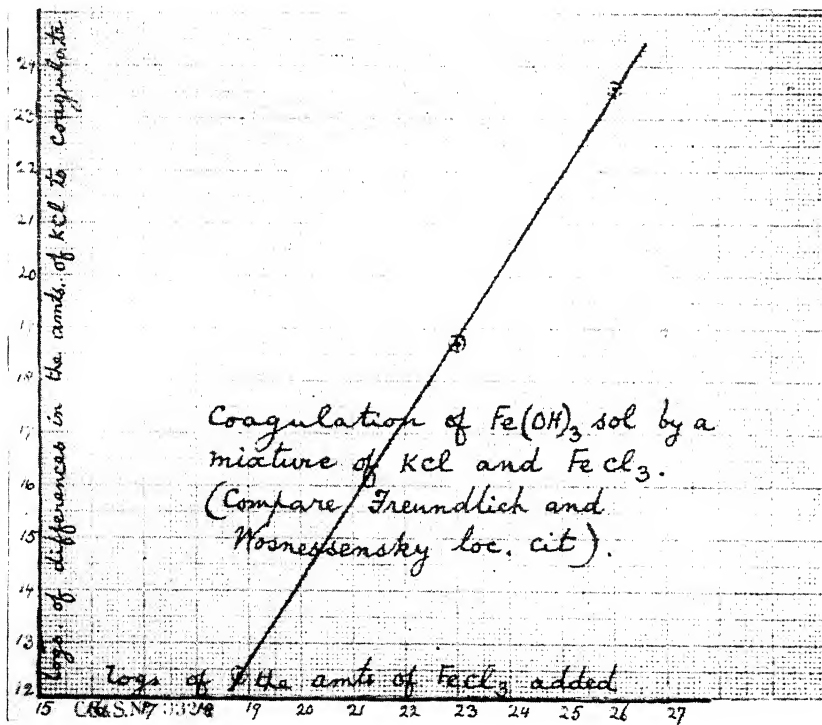 logs of differences in the amts. of KCl to coagulate
24
23
22
21
20
18
17
16
15
14
13
12
Coagulation of Fe(OH)3 sol by a
mixture of KCl and FeCl3.
(Compare Freundlich and
Wosnessensky loc. cit).
logs of the amts of FeCl3 added
15 19 20 21 22 23 24 25 26 27